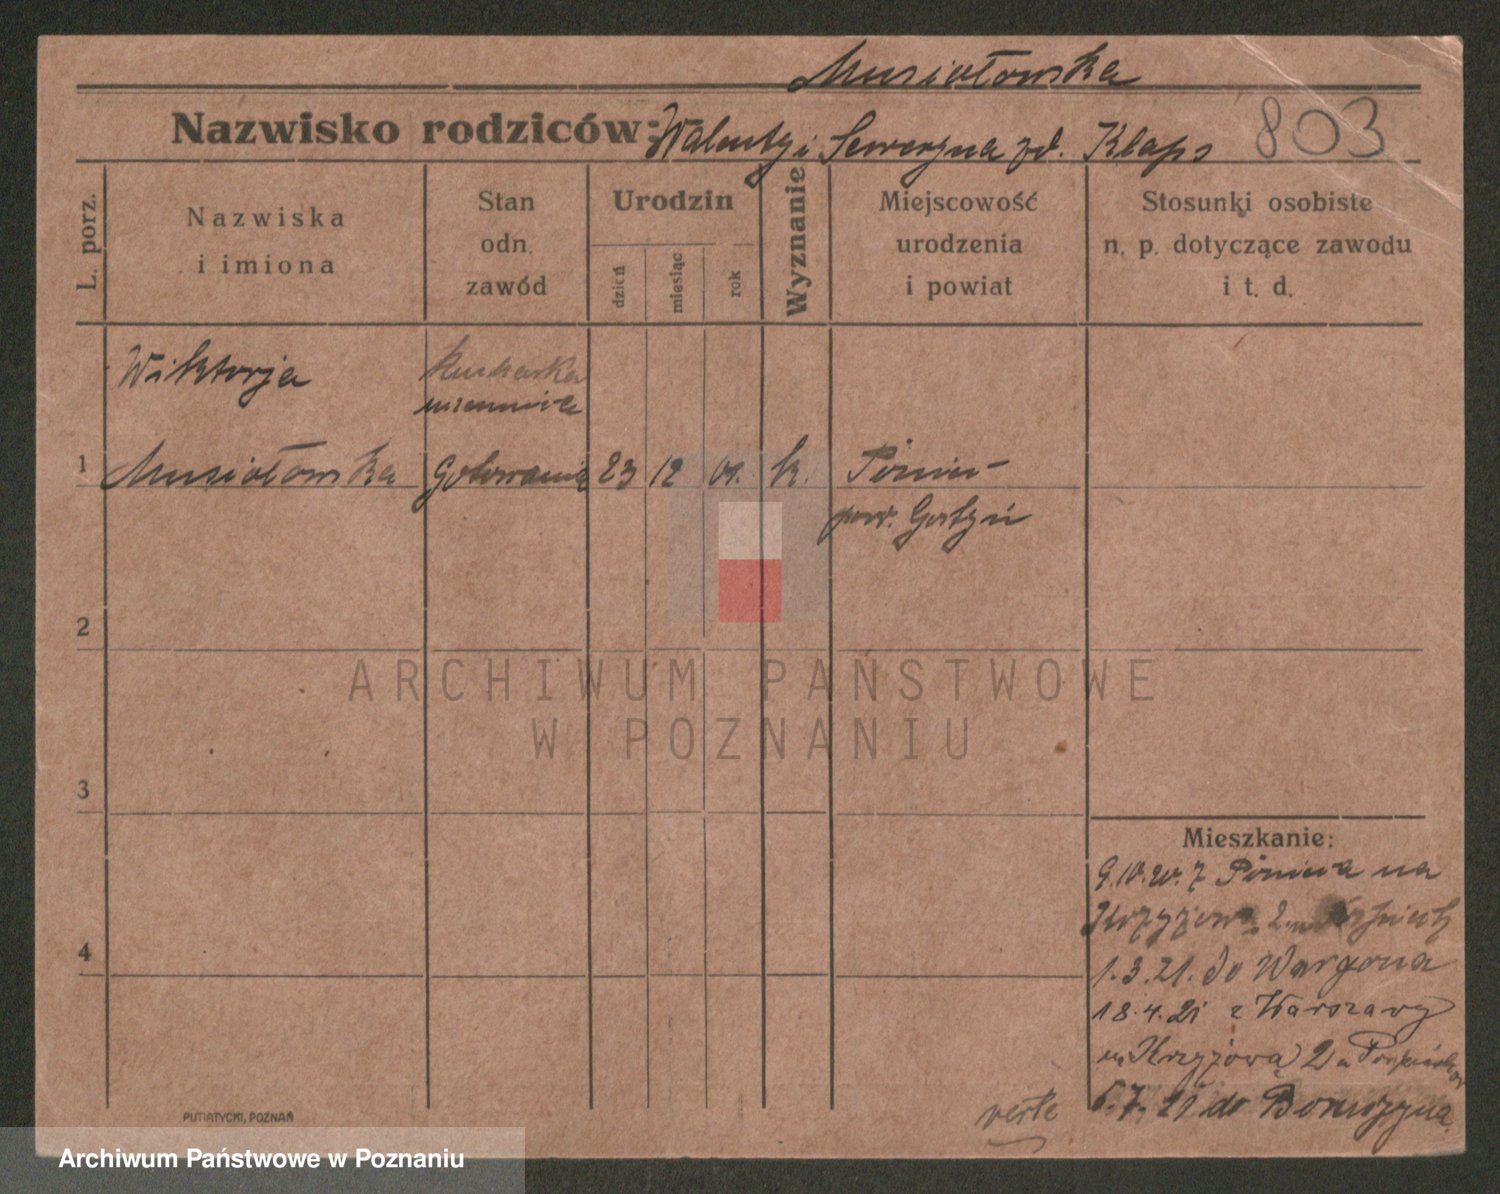 Musiołowska
Nazwisko rodziców: Walenty i Seweryna zd. Klaps 803
L. porz.
Nazwiska
i imiona
Stan
odn.
zawód
Urodzin
dzień
miesiąc
rok
Wyznanie
Miejscowość
urodzenia
i powiat
Stosunki osobiste
n. p. dotyczące zawodu
i t. d.
Wiktorja
kucharka
uczennica
1 Musiołowska Gotowania 23 12 01. k. Poniec
pow. Gostyń
2
3
4
ARCHIWUM PAŃSTWOWE
W POZNANIU
Mieszkanie:
9.10.20. z Ponieca na
2
1.3.21. do
18.4.21 z Warszawy
na Krzyżową 2
6.7.21 do
verte
PUTIATYCKI, POZNAŃ
Archiwum Państwowe w Poznaniu